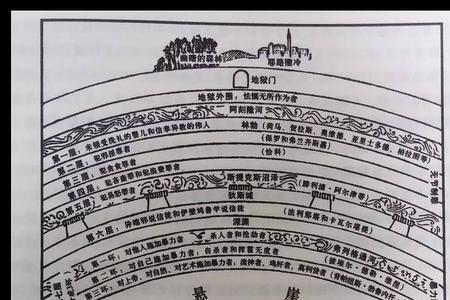 幽暗的森林
耶路撒冷
地狱门
地狱外围：怯懦无所作为者
阿刻隆河
第一层：未领受洗礼的婴儿和信奉异教的伟人 林勃（荷马、贺拉斯、奥维德、亚里士多德、柏拉图等）
第二层：犯邪淫罪者（保罗和弗兰齐斯嘉）
第三层：犯贪食罪者（恰科）
第四层：犯吝啬罪和犯浪费罪者
第五层：犯易怒罪者 斯提克斯沼泽（腓利波·阿尔津蒂）
狄斯城
第六层：异端邪说信徒和伊壁鸠鲁学说信徒（法利那塔和卡瓦尔堪提）
深渊
第一环：对他人施加暴力者 杀人者和抢劫者 弗列格通河
第二环：对自己施加暴力者：自杀者和挥霍无度者（彼埃尔·德勒·维涅）
第三环：对上帝、对自然、对艺术施加暴力者：渎神者、鸡奸者、高利贷者
悬崖